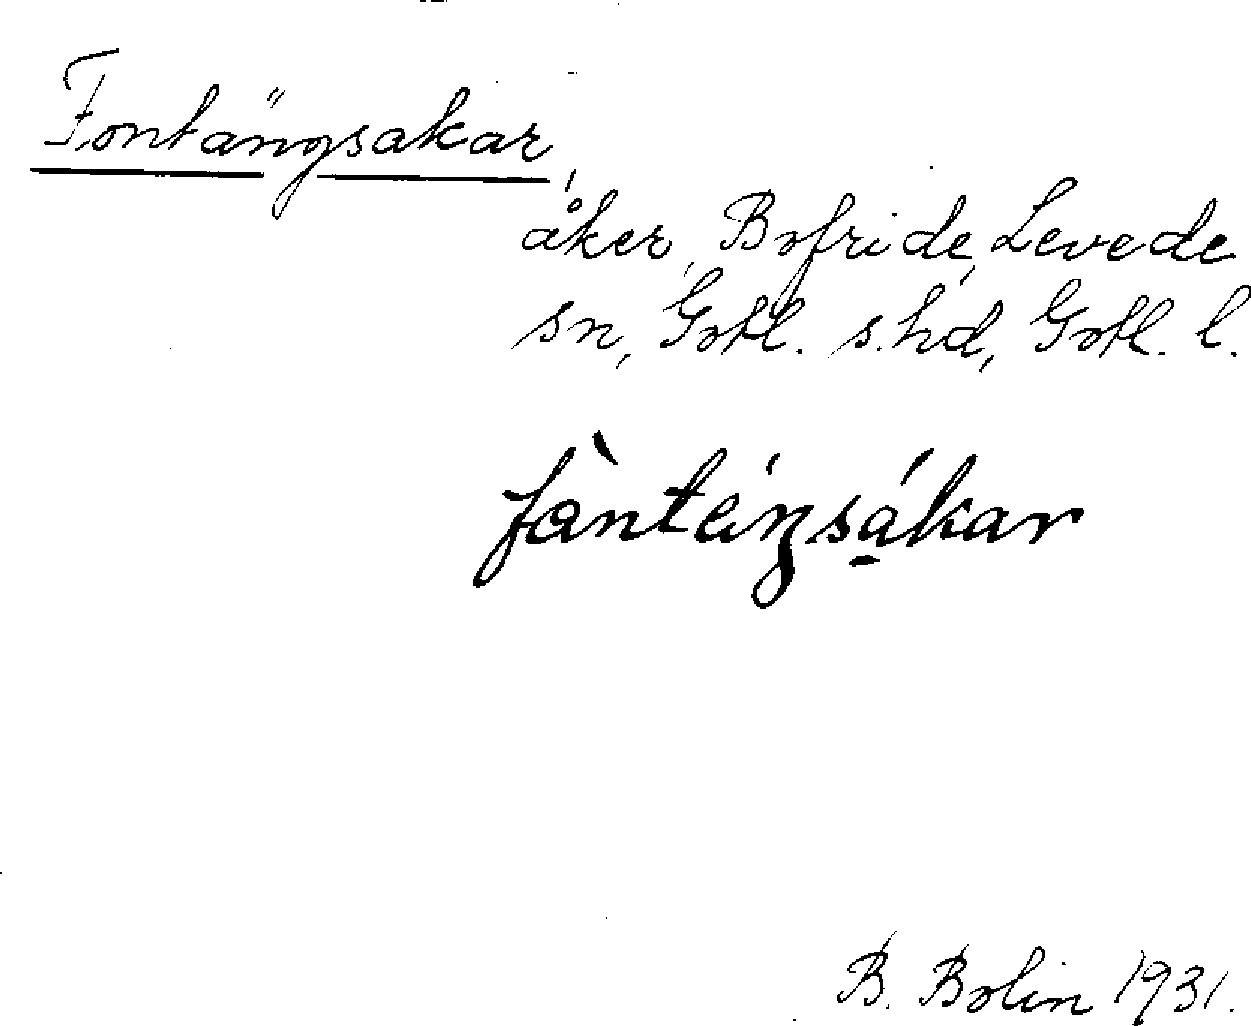 Fontängsakar,
åker, Bofride, Levede
sn, Gotl. s. hd, Gotl. l.
B. Bolin 1931.